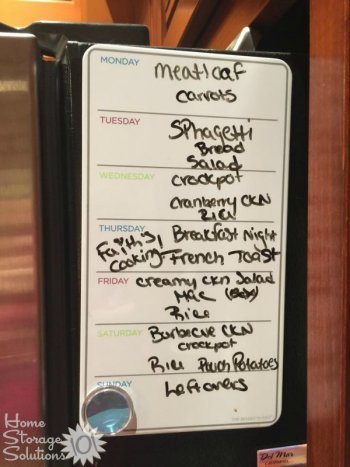 MONDAY
meatloaf
carrots
TUESDAY
SPhagetti
Bread
Salad
WEDNESDAY
crockpot
cranberry CKN
Rice
THURSDAY
Breakfast Night
Faith's
cooking - French Toast
FRIDAY
creamy ckn Salad
Mac
Rice
SATURDAY
Barbecue CKN
crockpot
Rice Pouch Potatoes
SUNDAY
Leftovers
Del Mar
Home
Storage
Solutions